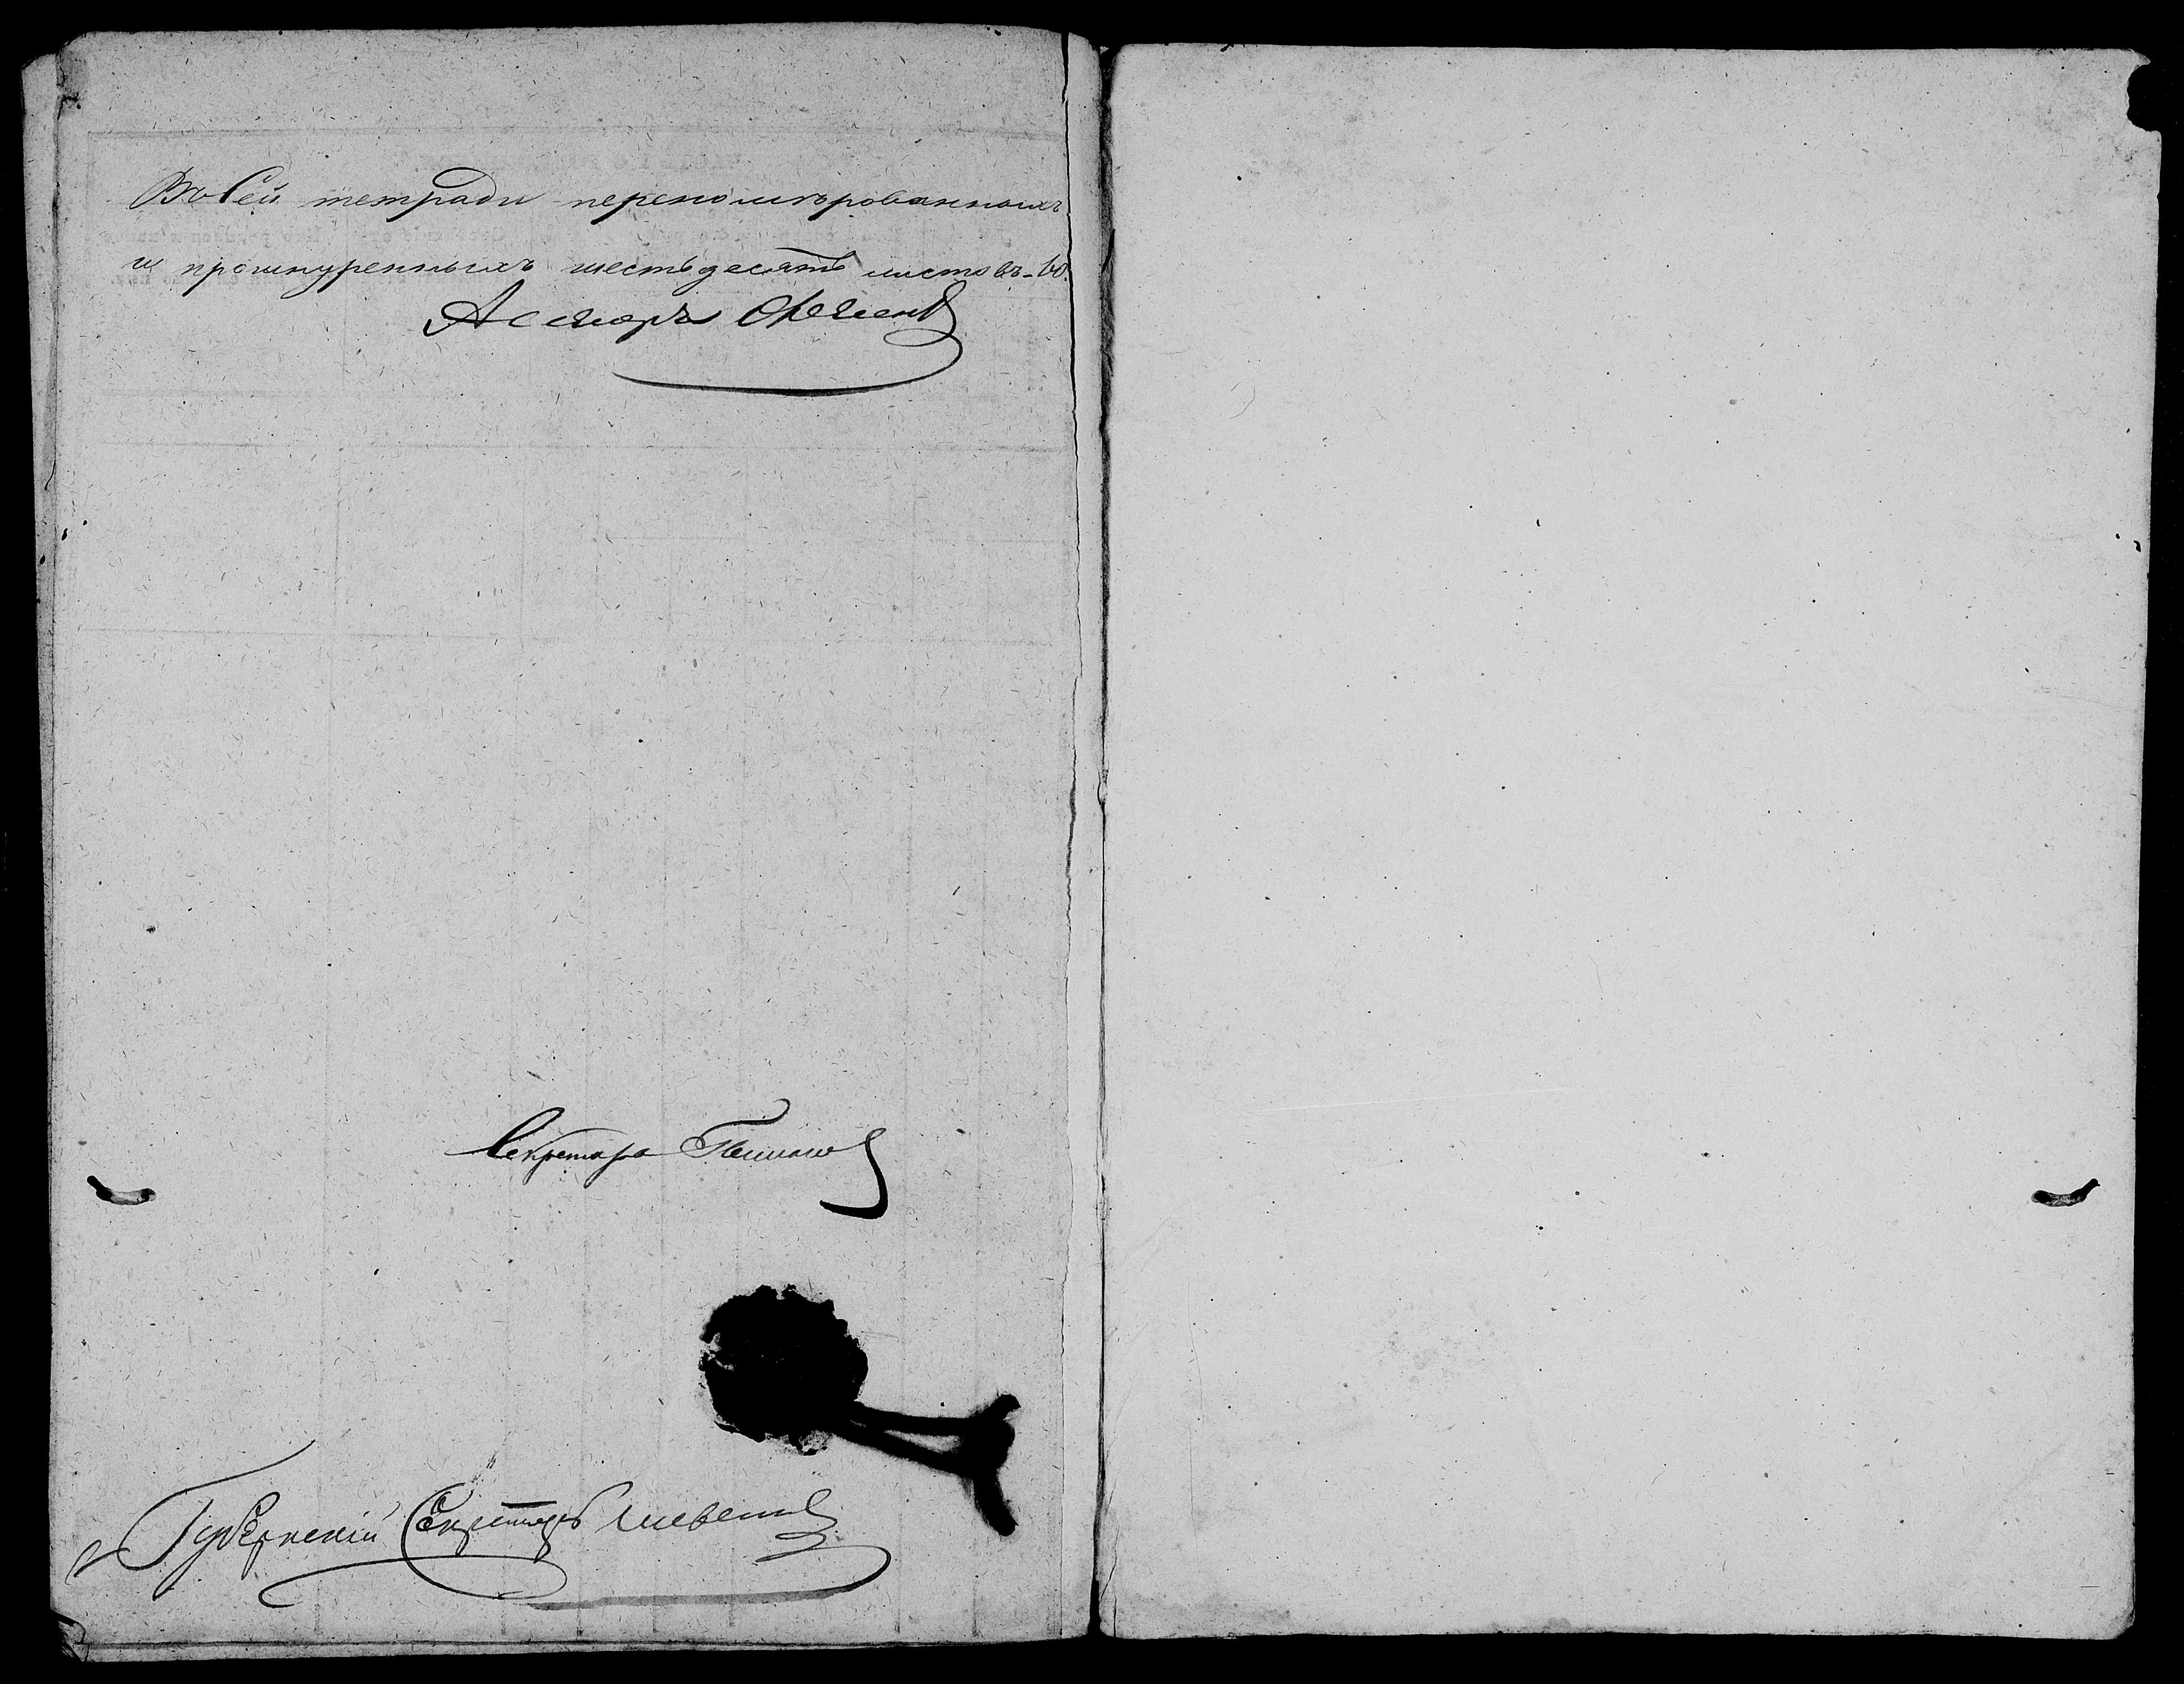 Въ Сей тетради переномѣрованныхъ
и прошнуренныхъ шестьдесятъ листовъ - 60.
Асессоръ
Секретарь
Губернскій Секретарь